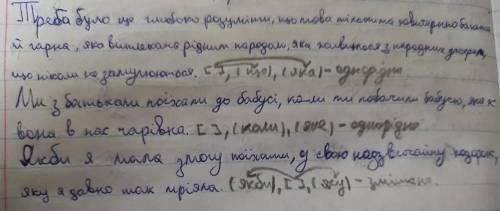 Треба було ще глибоко розуміти, що мова тільки та квітучо багата
й гарна, яка виплекана рідним народом, яка живиться з народних джерел,
що ніколи не замулюються. [ ], (що), (яка) - однорідна
Ми з батьками поїхали до бабусі, коли ти побачили бабусю, яка ж
вона в нас чарівна. [ ], (коли), (яка) - однорідна
Якби я мала змогу поїхати, у свою надзвичайну подорож,
яку я давно так мріяла. (якби), [ ], (яку) - змішане.